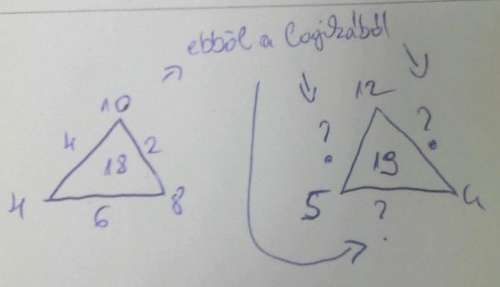 ebből a logikából
10
4 2
18
4 8
6
12
? ?
19
5 4
?